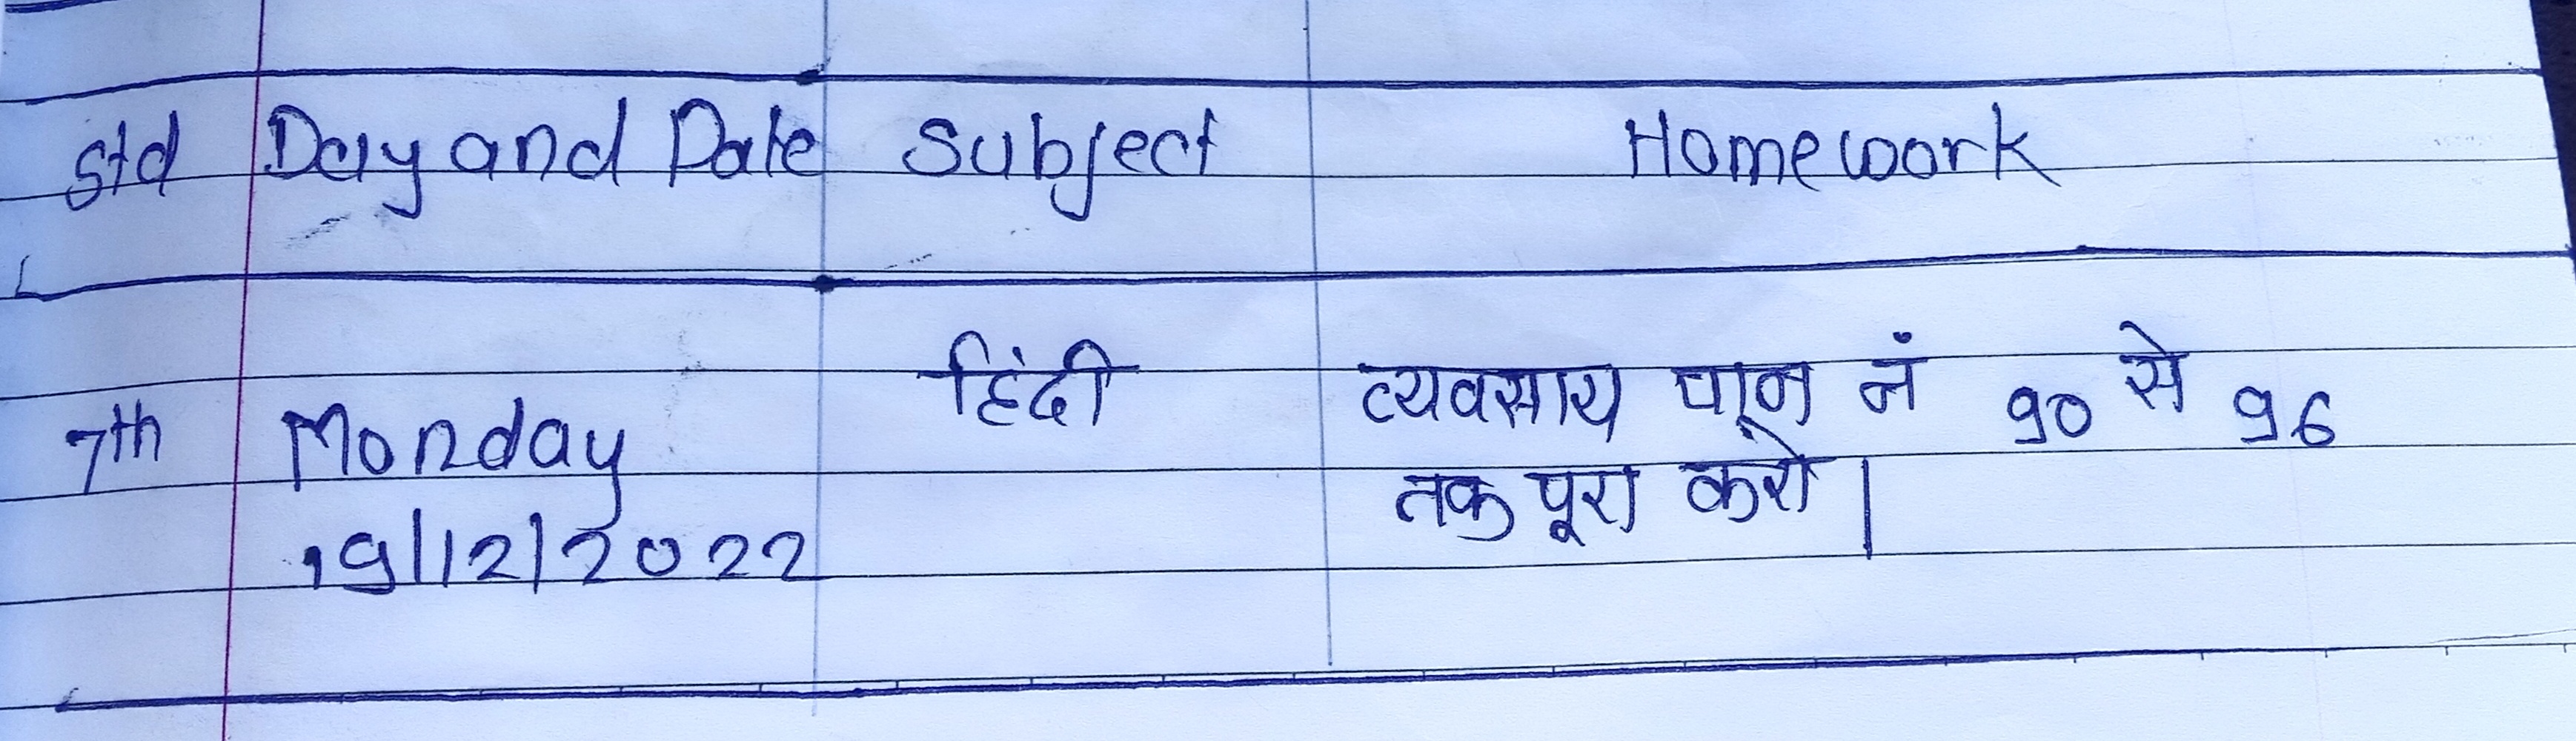 Std Day and Date Subject Homework
7th Monday हिंदी व्यवसाय पान नं 90 से 96
19/12/2022 तक पूरा करो |